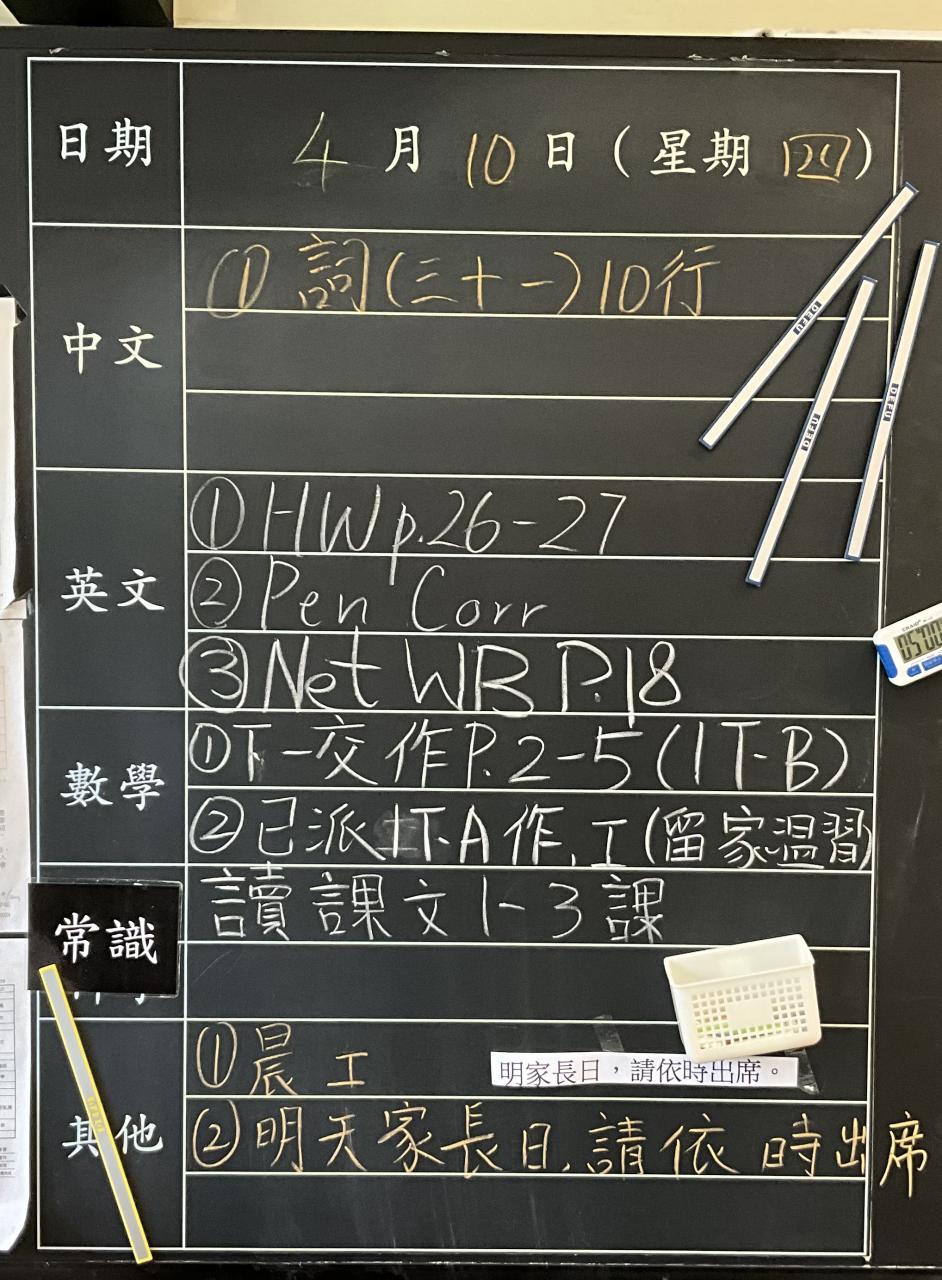 日期 4月10日(星期四)
中文 ①詞(三十一)10行
英文 ①HW p.26-27
②Pen Corr
③Net WB P.18
數學 ①下一交作P.2-5(1T-B)
②已派1T-A作,工(留家溫習)
常識 讀課文1-3課
其他 ①晨工
明家長日,請依時出席。
②明天家長日,請依時出席
DELI
DELI
DELI
05:00